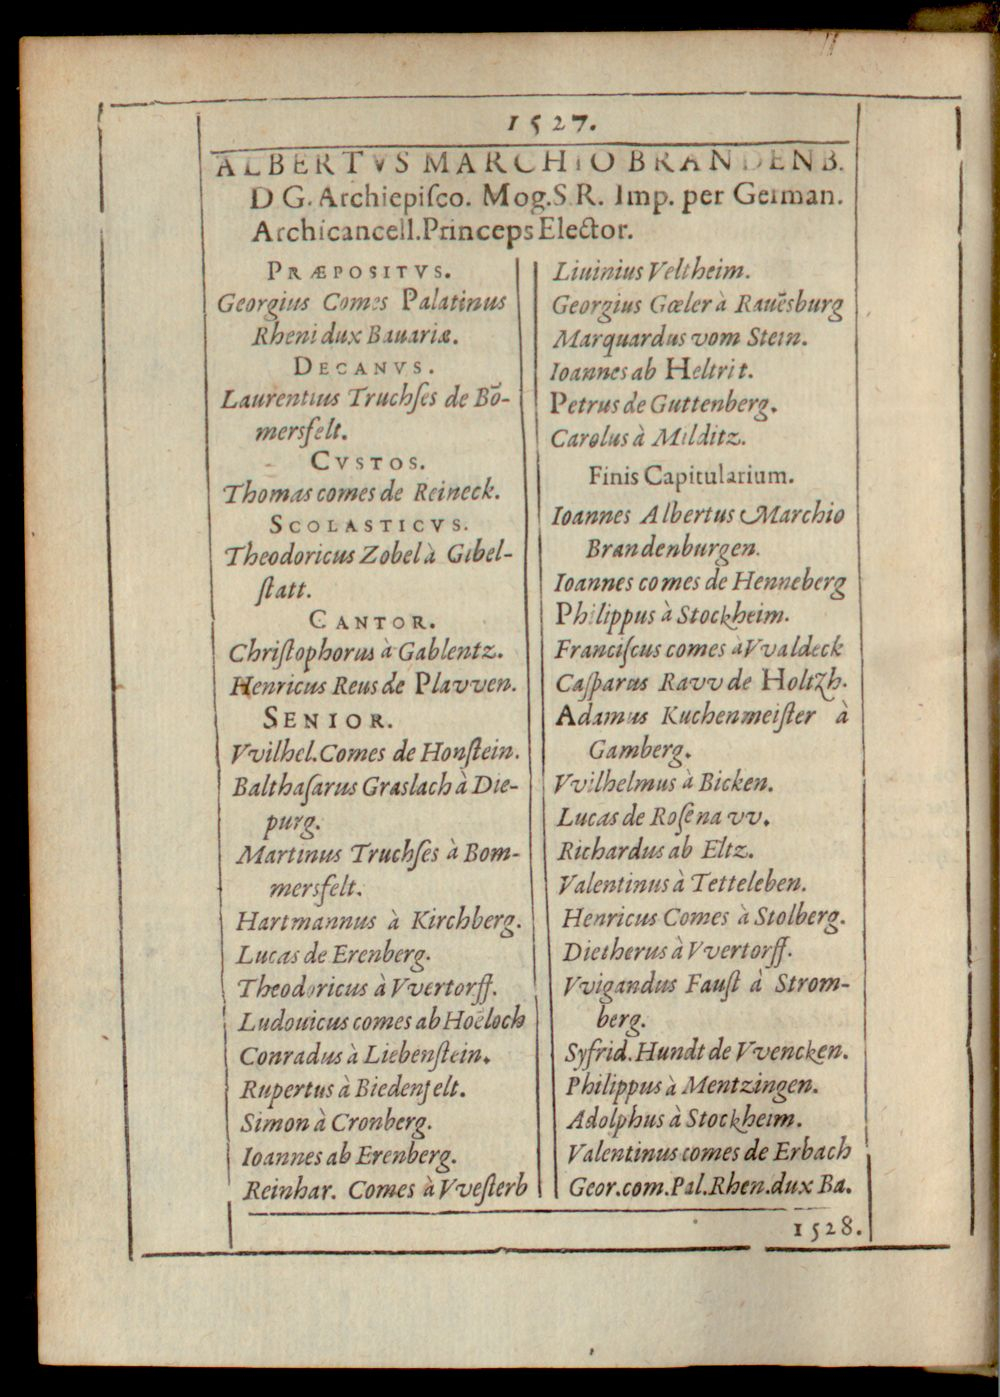 1527.
ALBERTVS MARCHIO BRANDENB.
D G. Archiepisco. Mog. S.R. Imp. per German.
Archicancell. Princeps Elector.
PRÆPOSITVS.
Georgius Comes Palatinus
Rheni dux Bauariæ.
DECANVS.
Laurentius Truchses de Bō-
mersfelt.
CVSTOS.
Thomas comes de Reineck.
SCOLASTICVS.
Theodoricus Zobel à Gibel-
statt.
CANTOR.
Christophorus à Gablentz.
Henricus Reus de Plavven.
SENIOR.
Vvilhel. Comes de Honstein.
Balthasarus Graslach à Die-
purg.
Martinus Truchses à Bom-
mersfelt.
Hartmannus à Kirchberg.
Lucas de Erenberg.
Theodoricus à Vvertorff.
Ludouicus comes ab Hoëloch
Conradus à Liebenstein.
Rupertus à Biedenfelt.
Simon à Cronberg.
Ioannes ab Erenberg.
Reinhar. Comes à Vvesterb
Liuinius Veltheim.
Georgius Gœler à Rauēsburg
Marquardus vom Stein.
Ioannes ab Heltrit.
Petrus de Guttenberg.
Carolus à Milditz.
Finis Capitularium.
Ioannes Albertus Marchio
Brandenburgen.
Ioannes comes de Henneberg
Philippus à Stockheim.
Franciscus comes à Vvaldeck
Casparus Ravv de Holtzh.
Adamus Kuchenmeister à
Gamberg.
Vvilhelmus à Bicken.
Lucas de Rosenavv.
Richardus ab Eltz.
Valentinus à Tetteleben.
Henricus Comes à Stolberg.
Dietherus à Vvertorff.
Vvigandus Faust à Strom-
berg.
Syfrid. Hundt de Vvencken.
Philippus à Mentzingen.
Adolphus à Stockheim.
Valentinus comes de Erbach
Geor. com. Pal. Rhen. dux Ba.
1528.